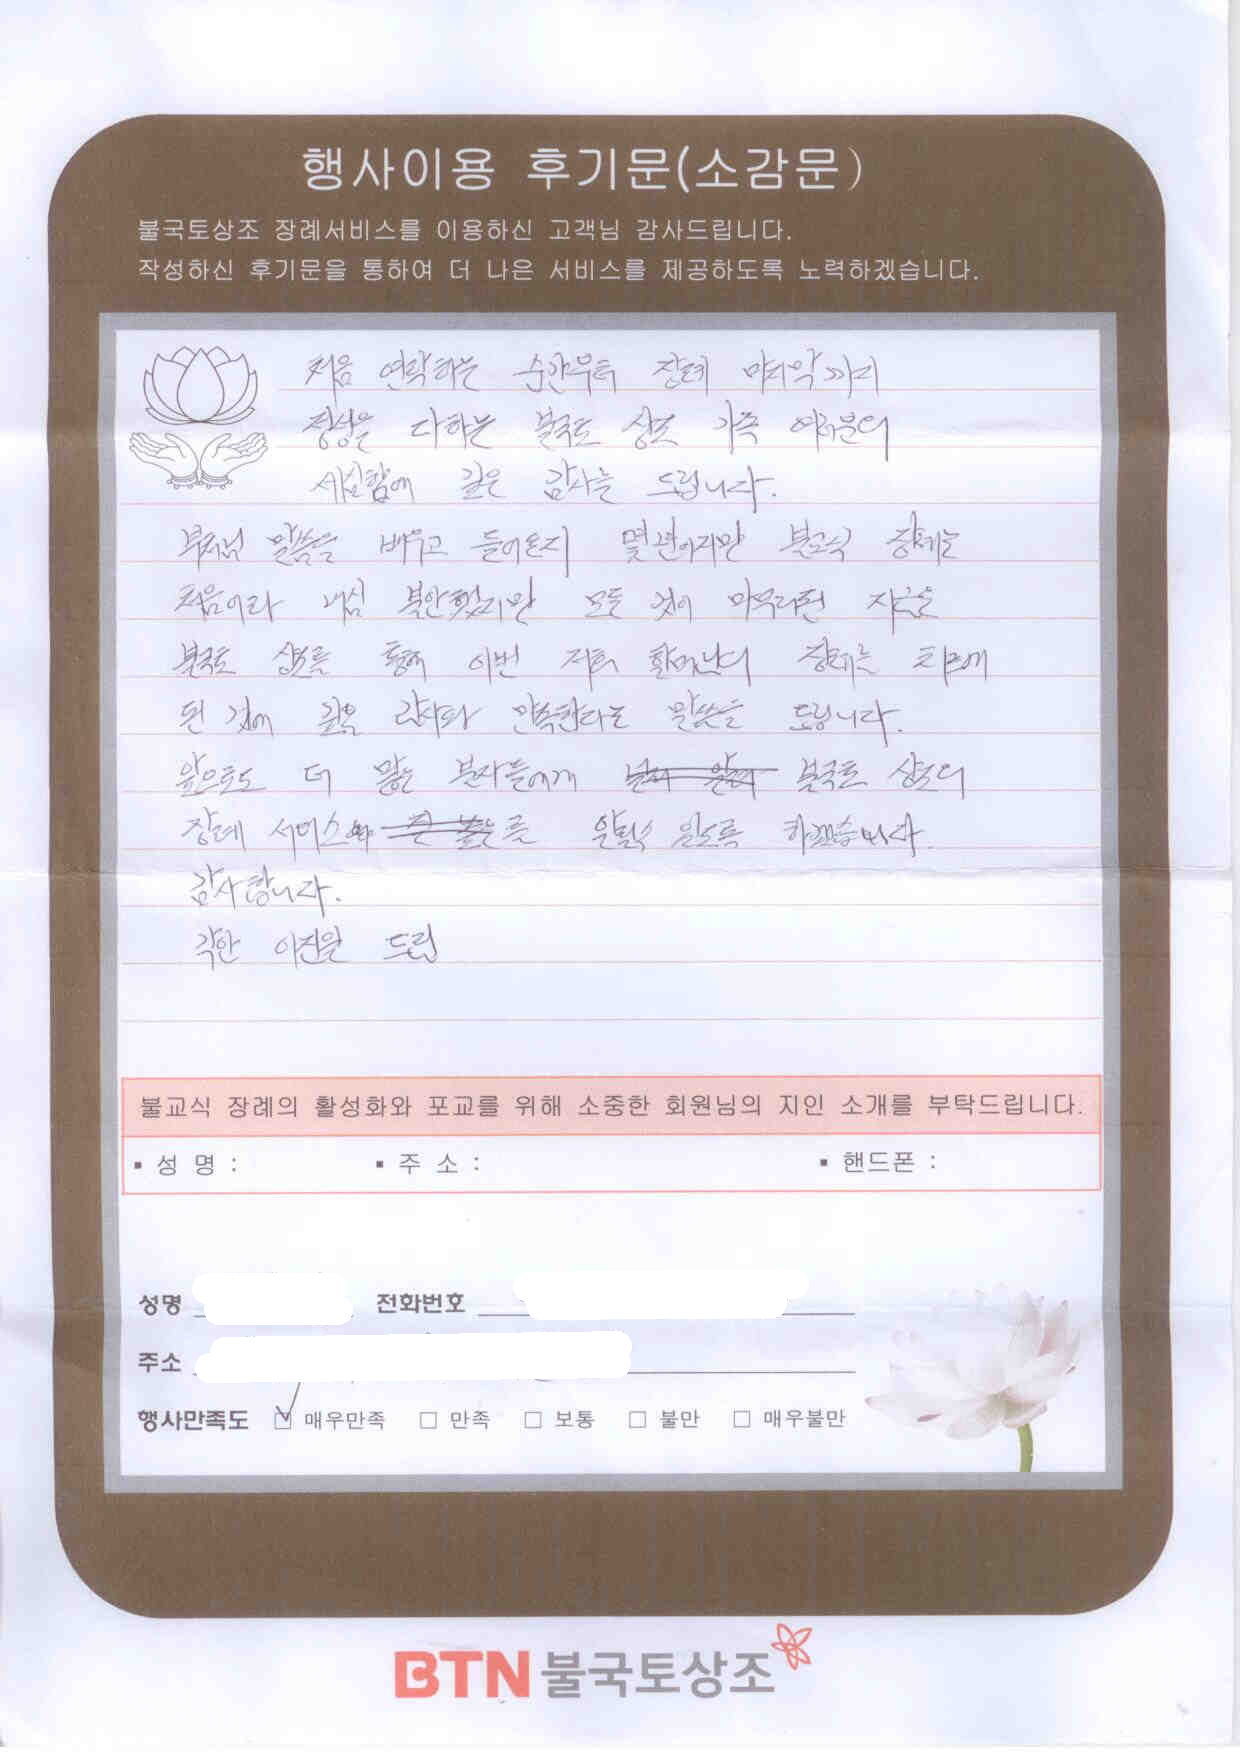 행사이용 후기문(소감문)
불국토상조 장례서비스를 이용하신 고객님 감사드립니다.
작성하신 후기문을 통하여 더 나은 서비스를 제공하도록 노력하겠습니다.
처음 연락하는 순간부터 장례 마지막까지
정성을 다하는 불국토 상조 가족 여러분의
세심함에 깊은 감사를 드립니다.
부처님 말씀을 배우고 들어온지 몇년이지만 불교식 장례는
처음이라 내심 불안했지만 모든 것이 마무리된 지금은
불국토 상조를 통해 이번 저희 할머니의 장례를 치르게
된 것에 깊은 감사와 만족한다는 말씀을 드립니다.
앞으로도 더 많은 불자들에게 불국토 상조의
장례 서비스 를 알릴수 있도록 하겠습니다.
감사합니다.
각안 이진원 드림
불교식 장례의 활성화와 포교를 위해 소중한 회원님의 지인 소개를 부탁드립니다.
▪ 성 명 : ▪ 주 소 : ▪ 핸드폰 :
성명 전화번호
주소
행사만족도 ☑ 매우만족 □ 만족 □ 보통 □ 불만 □ 매우불만
BTN 불국토상조